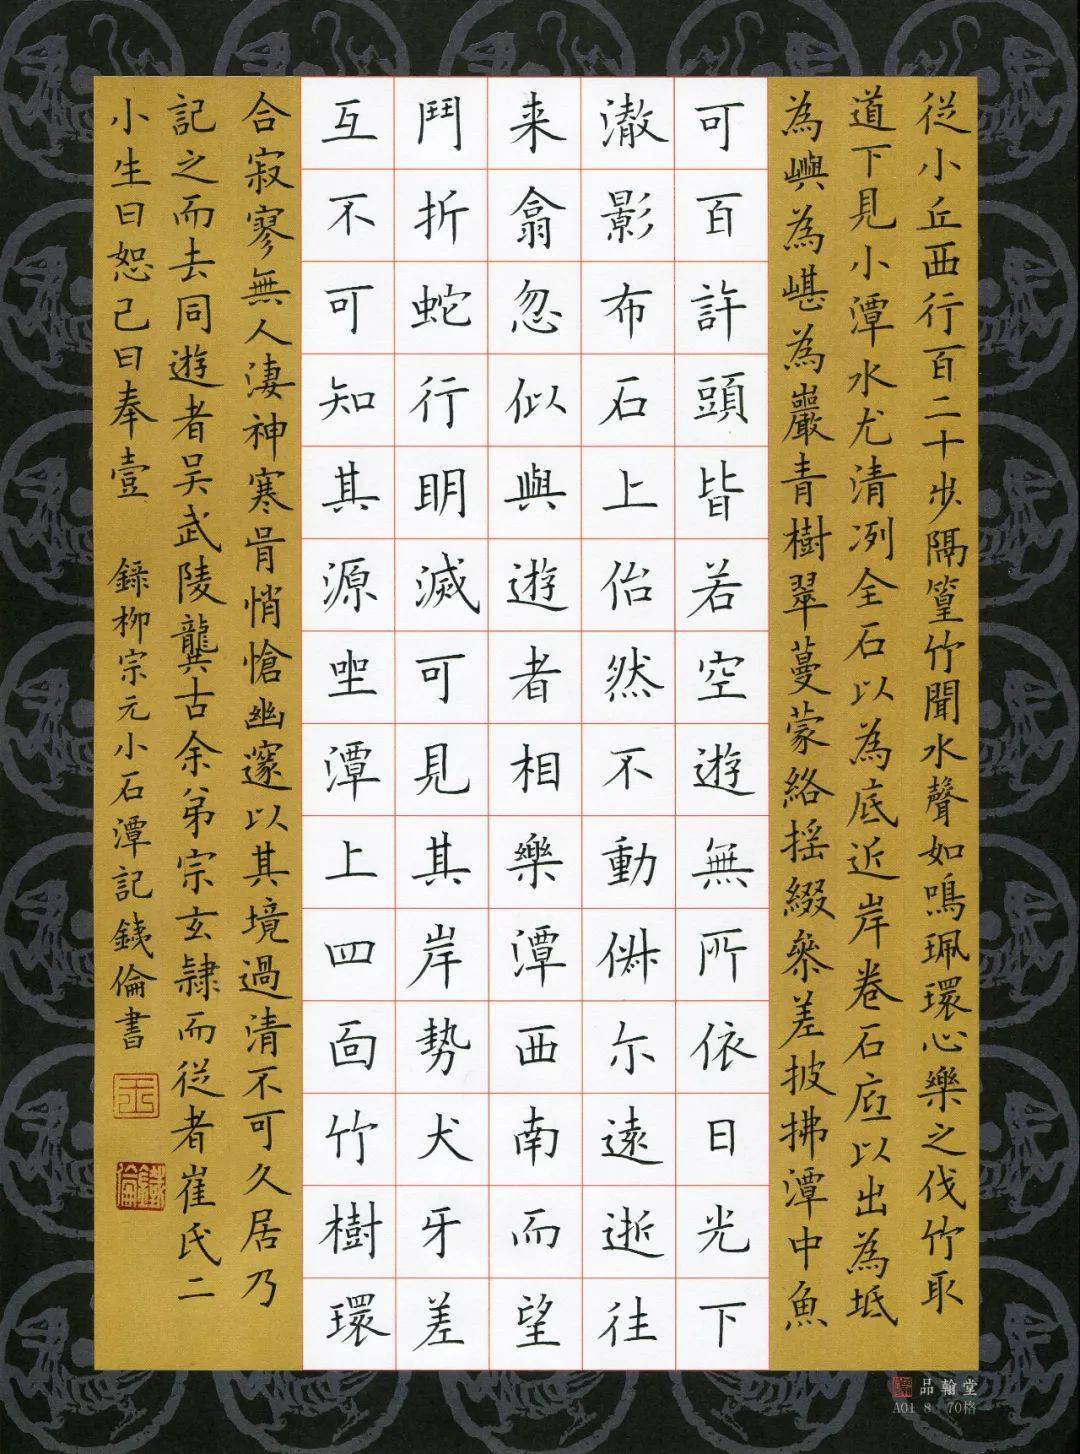 從小丘西行百二十步隔篁竹聞水聲如鳴珮環心樂之伐竹取
道下見小潭水尤清冽全石以為底近岸卷石底以出為坻
為嶼為嵁為巖青樹翠蔓蒙絡摇綴參差披拂潭中魚
可百許頭皆若空遊無所依日光下
澈影布石上佁然不動俶尔遠逝往
来翕忽似與遊者相樂潭西南而望
鬥折蛇行明滅可見其岸勢犬牙差
互不可知其源坐潭上四面竹樹環
合寂寥無人淒神寒骨悄愴幽邃以其境過清不可久居乃
記之而去同遊者吴武陵龔古余弟宗玄隷而從者崔氏二
小生曰恕己曰奉壹 錄柳宗元小石潭記鐵倫書
品翰堂
A01 8 70格